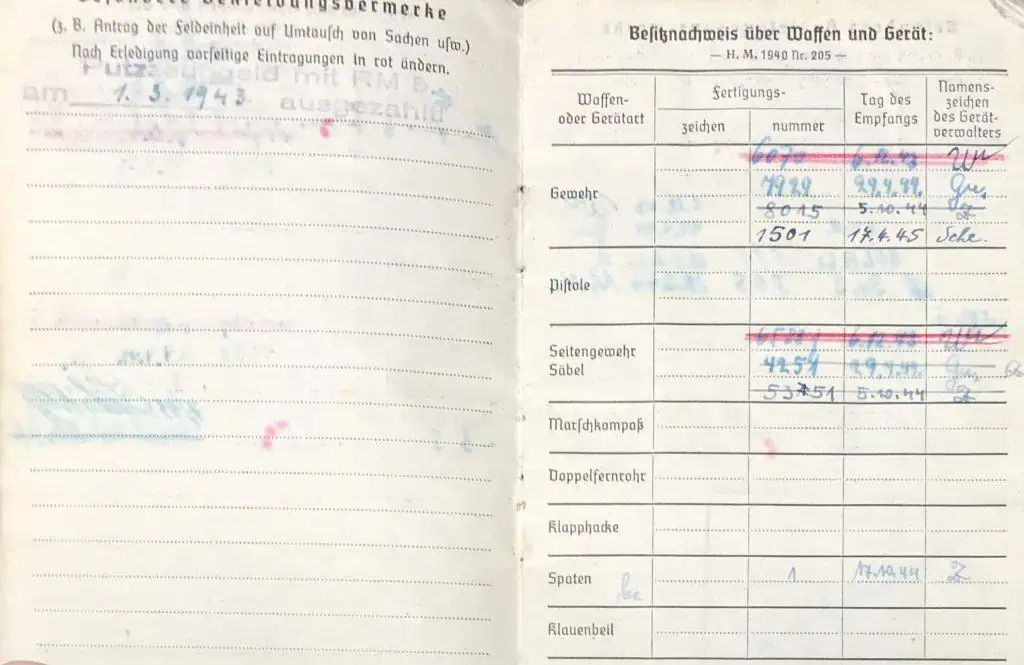 Besondere Bekleidungsvermerke
(z. B. Antrag der Feldeinheit auf Umtausch von Sachen usw.)
Nach Erledigung vorseitige Eintragungen in rot ändern.
Putzzeuggeld mit RM 5,-
am 1. 3. 1943 ausgezahlt
Besitznachweis über Waffen und Gerät:
— H. M. 1940 Nr. 205 —
Waffen- oder Gerätart
Fertigungs-
zeichen
nummer
Tag des Empfangs
Namens- zeichen des Gerät- verwalters
Gewehr
6.12.43
7929 29.4.44. Gu.
8015 5.10.44 Z
1501 17.4.45 Sche.
Pistole
Seitengewehr
Säbel
6.12.43
4251 29.4.44. Gu.
5.10.44 Z
Marschkompaß
Doppelfernrohr
Klapphacke
Spaten 1 17.10.44 Z
Klauenbeil